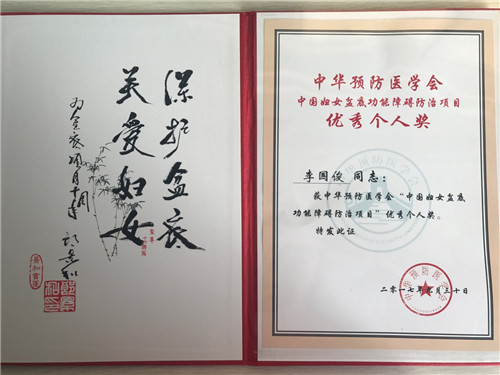 护盆底
关爱妇女
郎景和
中华预防医学会
中国妇女盆底功能障碍防治项目
优秀个人奖
李国俊 同志：
获中华预防医学会“中国妇女盆底
功能障碍防治项目”优秀个人奖。
特发此证
中华预防医学会
二〇一七年 月三十日